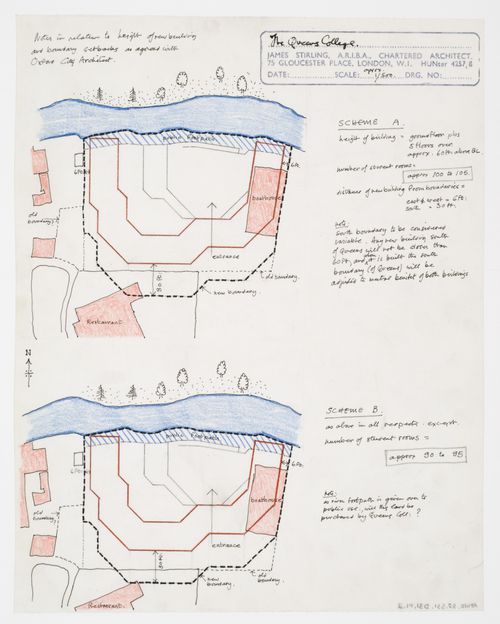 Notes in relation to height of new building
and boundary setbacks as agreed with
Oxford City Architect.
The Queens College.
JAMES STIRLING, A.R.I.B.A., CHARTERED ARCHITECT.
75 GLOUCESTER PLACE, LONDON, W.1. HUNter 4257, 8
DATE: SCALE: approx 1/500. DRG. NO:
SCHEME A.
height of building = groundfloor plus
5 floors over
approx. 60ft above GL
number of student rooms =
approx 100 to 105.
distance of new building from boundaries =
east & west = 6ft.
south = 30ft.
Note:
South boundary to be considered
variable. Any new building south
of Queens will not be closer than
60ft, and when it is built the south
boundary (of Queens) will be
adjusted to mutual benefit of both buildings
public footpath
6ft.
6ft.
boathouse
old
boundary
entrance
30ft.
old boundary.
new boundary.
Restaurant
N
SCHEME B.
as above in all respects except
number of student rooms =
approx 90 to 95
Note:
as river footpath is given over to
public use, will this land be
purchased by Queens Coll. ?
public footpath
6ft.
6ft.
boathouse
old
boundary
entrance
30ft.
new
boundary.
old
boundary.
Restaurant